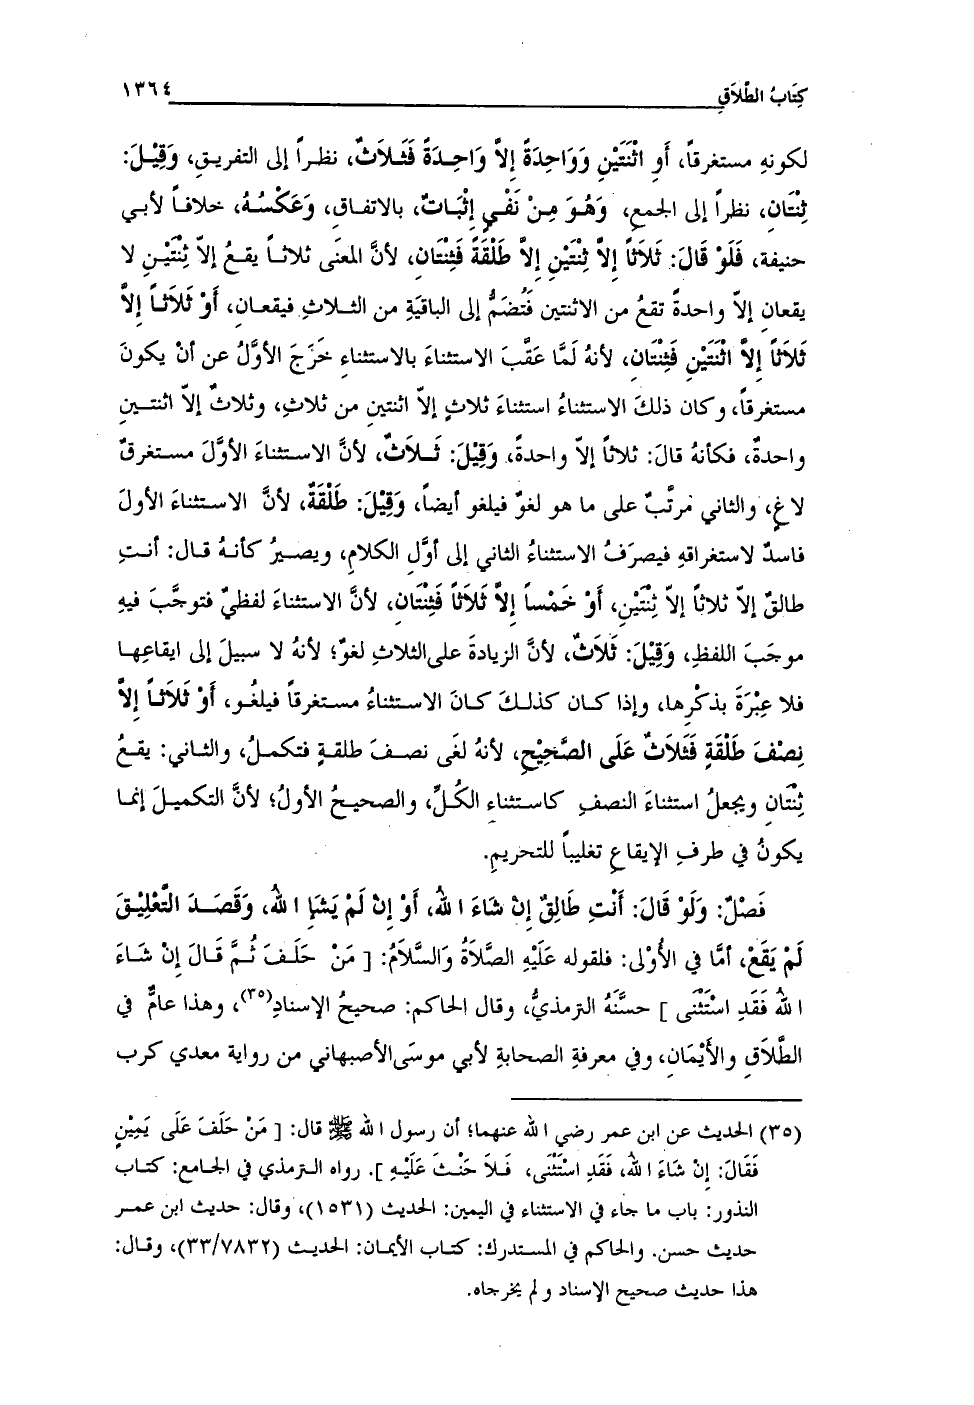 كِتَابُ الطَّلاَقِ ١٣٦٤
لكونهِ مستغرقاً، أَوِ اثْنَتَيْنِ وَوَاحِدَةً إِلاَّ وَاحِدَةً فَثَلاَثٌ، نظراً إلى التفريقِ، وَقِيْلَ:
ثِنْتَانِ، نظراً إلى الجمعِ، وَهُوَ مِنْ نَفْيٍ إِثْبَاتٌ، بالاتفاقِ، وَعَكْسُهُ، خلافاً لأبي
حنيفة، فَلَوْ قَالَ: ثَلاَثاً إِلاَّ ثِنْتَيْنِ إِلاَّ طَلْقَةً فَثِنْتَانِ، لأنَّ المعنَى ثلاثاً يقعُ إلاّ ثِنْتَيْنِ لا
يقعانِ إلاّ واحدةً تقعُ من الاثنتين فَتُضَمُّ إلى الباقيَةِ من الثلاثِ فيقعانِ، أَوْ ثَلاَثاً إِلاَّ
ثَلاَثاً إِلاَّ اثْنَتَيْنِ فَثِنْتَانِ، لأنهُ لَمَّا عَقَّبَ الاستثناءَ بالاستثناءِ خَرَجَ الأوَّلُ عن أنْ يكونَ
مستغرقاً، وكان ذلكَ الاستثناءُ استثناءَ ثلاثٍ إلاّ اثنتينِ من ثلاثٍ، وثلاثٌ إلاّ اثنتينِ
واحدةٌ، فكأنهُ قالَ: ثلاثاً إلاّ واحدةً، وَقِيْلَ: ثَلاَثٌ، لأنَّ الاستثناءَ الأوَّلَ مستغرقٌ
لاغٍ، والثاني مرتَّبٌ على ما هو لغوٌ فيلغو أيضاً، وَقِيْلَ: طَلْقَةٌ، لأنَّ الاستثناءَ الأولَ
فاسدٌ لاستغراقهِ فيصرَفُ الاستثناءُ الثاني إلى أوَّلِ الكلامِ، ويصيرُ كأنهُ قال: أنتِ
طالقٌ إلاّ ثلاثاً إلاّ ثِنْتَيْنِ، أَوْ خَمْساً إِلاَّ ثَلاَثاً فَثِنْتَانِ، لأنَّ الاستثناءَ لفظيٌّ فتوجَّبَ فيهِ
موجَبَ اللفظِ، وَقِيْلَ: ثَلاَثٌ، لأنَّ الزيادةَ على الثلاثِ لغوٌ؛ لأنهُ لا سبيلَ إلى ايقاعِها
فلا عِبْرَةَ بذكْرِها، وإذا كان كذلكَ كانَ الاستثناءُ مستغرقاً فيلغُو، أَوْ ثَلاَثاً إِلاَّ
نِصْفَ طَلْقَةٍ فَثَلاَثٌ عَلَى الصَّحِيْحِ، لأنهُ لغَى نصفَ طلقةٍ فتكملُ، والثاني: يقعُ
ثِنْتَانِ ويجعلُ استثناءَ النصفِ كاستثناءِ الكُلِّ، والصحيحُ الأولُ؛ لأنَّ التكميلَ إنما
يكونُ في طرفِ الإيقاعِ تغليباً للتحريمِ.
فَصْلٌ: وَلَوْ قَالَ: أَنْتِ طَالِقٌ إِنْ شَاءَ اللهُ، أَوْ إِنْ لَمْ يَشَإِ اللهُ، وَقَصَدَ التَّعْلِيْقَ
لَمْ يَقَعْ، أمَّا في الأُوْلى: فلقوله عَلَيْهِ الصَّلاَةُ وَالسَّلاَمُ: [ مَنْ حَلَفَ ثُمَّ قَالَ إِنْ شَاءَ
اللهُ فَقَدِ اسْتَثْنَى ] حسَّنَهُ الترمذيُّ، وقال الحاكم: صحيحُ الإسنادِ(٣٥)، وهذا عامٌّ في
الطَّلاَقِ والأَيْمَانِ، وفي معرفةِ الصحابةِ لأبي موسَى الأصبهاني من رواية معدي كرب
(٣٥) الحديث عن ابن عمر رضي الله عنهما؛ أن رسول الله ﷺ قال: [ مَنْ حَلَفَ عَلَى يَمِيْنٍ
فَقَالَ: إِنْ شَاءَ اللهُ، فَقَدِ اسْتَثْنَى، فَلاَ حَنْثَ عَلَيْهِ ]. رواه الترمذي في الجامع: كتاب
النذور: باب ما جاء في الاستثناء في اليمين: الحديث (١٥٣١)، وقال: حديث ابن عمر
حديث حسن. والحاكم في المستدرك: كتاب الأيمان: الحديث (٣٣/٧٨٣٢)، وقال:
هذا حديث صحيح الإسناد و لم يخرجاه.